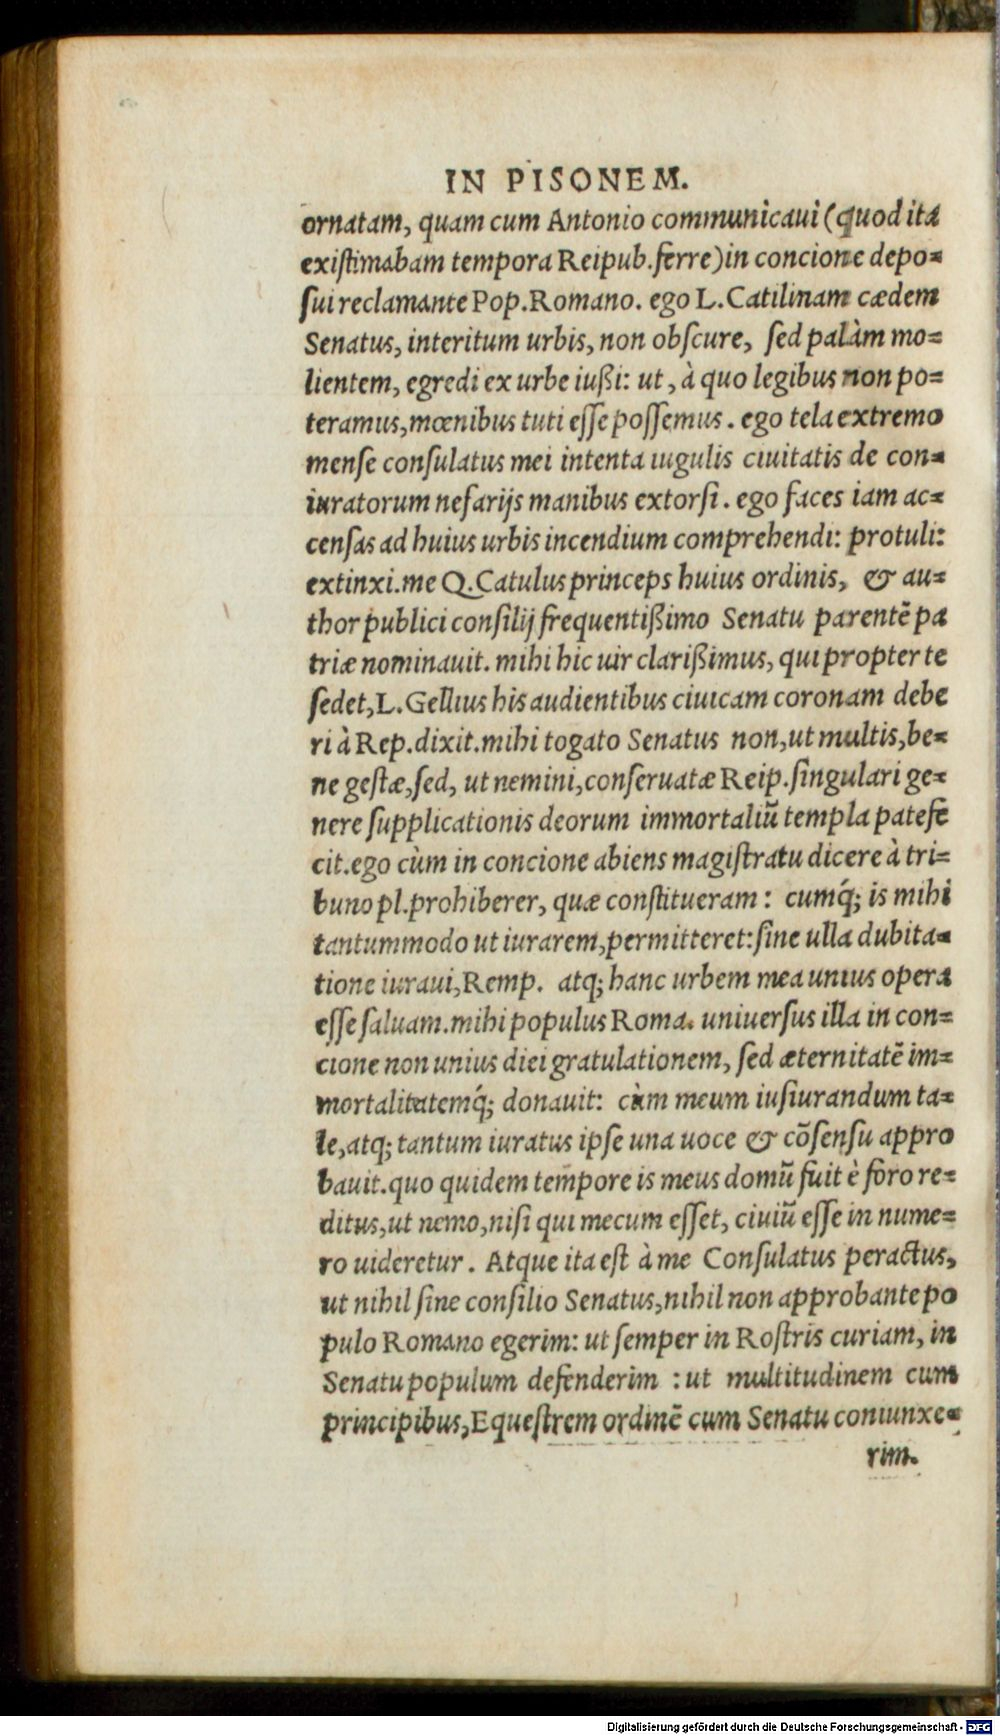 IN PISONEM.
ornatam, quam cum Antonio communicaui (quod ita
existimabam tempora Reipub. ferre) in concione depo=
sui reclamante Pop. Romano. ego L. Catilinam cædem
Senatus, interitum urbis, non obscure, sed palàm mo=
lientem, egredi ex urbe iußi: ut, à quo legibus non po=
teramus, mœnibus tuti esse possemus. ego tela extremo
mense consulatus mei intenta iugulis ciuitatis de con=
iuratorum nefarijs manibus extorsi. ego faces iam ac=
censas ad huius urbis incendium comprehendi: protuli:
extinxi. me Q. Catulus princeps huius ordinis, & au=
thor publici consilij frequentißimo Senatu parentẽ pa
triæ nominauit. mihi hic uir clarißimus, qui propter te
sedet, L. Gellius his audientibus ciuicam coronam debe
ri à Rep. dixit. mihi togato Senatus non, ut multis, be=
ne gestæ, sed, ut nemini, conseruatæ Reip. singulari ge=
nere supplicationis deorum immortaliũ templa patefe
cit. ego cùm in concione abiens magistratu dicere à tri=
buno pl. prohiberer, quæ constitueram: cumq́; is mihi
tantummodo ut iurarem, permitteret: sine ulla dubita=
tione iuraui, Remp. atq; hanc urbem mea unius opera
esse saluam. mihi populus Roma. uniuersus illa in con=
cione non unius diei gratulationem, sed æternitatẽ im=
mortalitatemq́; donauit: cùm meum iusiurandum ta=
le, atq; tantum iuratus ipse una uoce & cõsensu appro
bauit. quo quidem tempore is meus domũ fuit è foro re=
ditus, ut nemo, nisi qui mecum esset, ciuiũ esse in nume=
ro uideretur. Atque ita est à me Consulatus peractus,
ut nihil sine consilio Senatus, nihil non approbante po
pulo Romano egerim: ut semper in Rostris curiam, in
Senatu populum defenderim : ut multitudinem cum
principibus, Equestrem ordinẽ cum Senatu coniunxe=
rim.
Digitalisierung gefördert durch die Deutsche Forschungsgemeinschaft - DFG